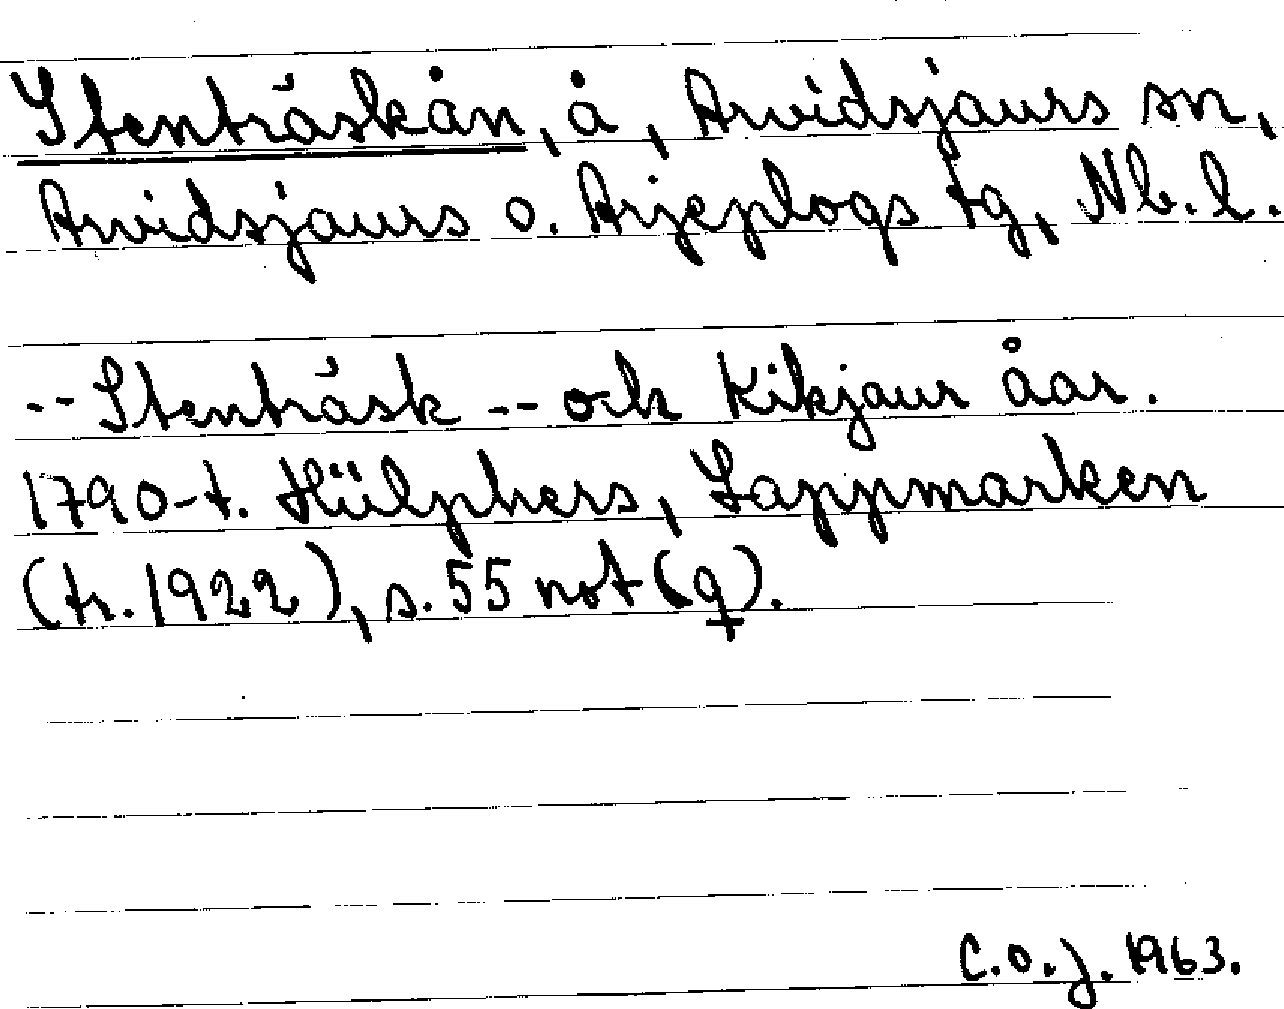 Stenträskån, å, Arvidsjaurs sn,
Arvidsjaurs o. Arjeplogs tg, Nb. l.
-- Stenträsk -- och Kikjaur åar.
1790-t. Hülphers, Lappmarken
(tr. 1922), s. 55 not (q).
C.O.J. 1963.